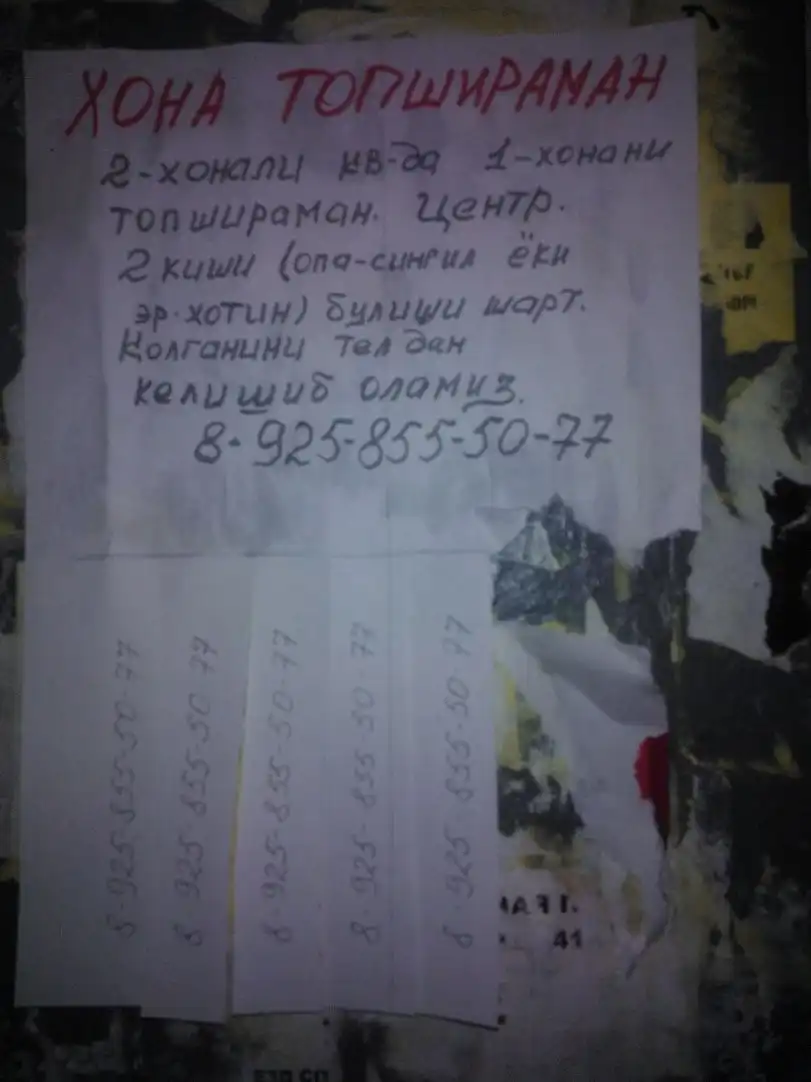 ХОНА ТОПШИРАМАН
2-хонали кв-да 1-хонани
топшираман. Центр.
2 киши (опа-сингил ёки
эр-хотин) булиши шарт.
Колганини тел дан
келишиб оламиз.
8-925-855-50-77
8-925-855-50-77
8-925-855-50-77
8-925-855-50-77
8-925-855-50-77
8-925-855-50-77
НАЯ Г.
41